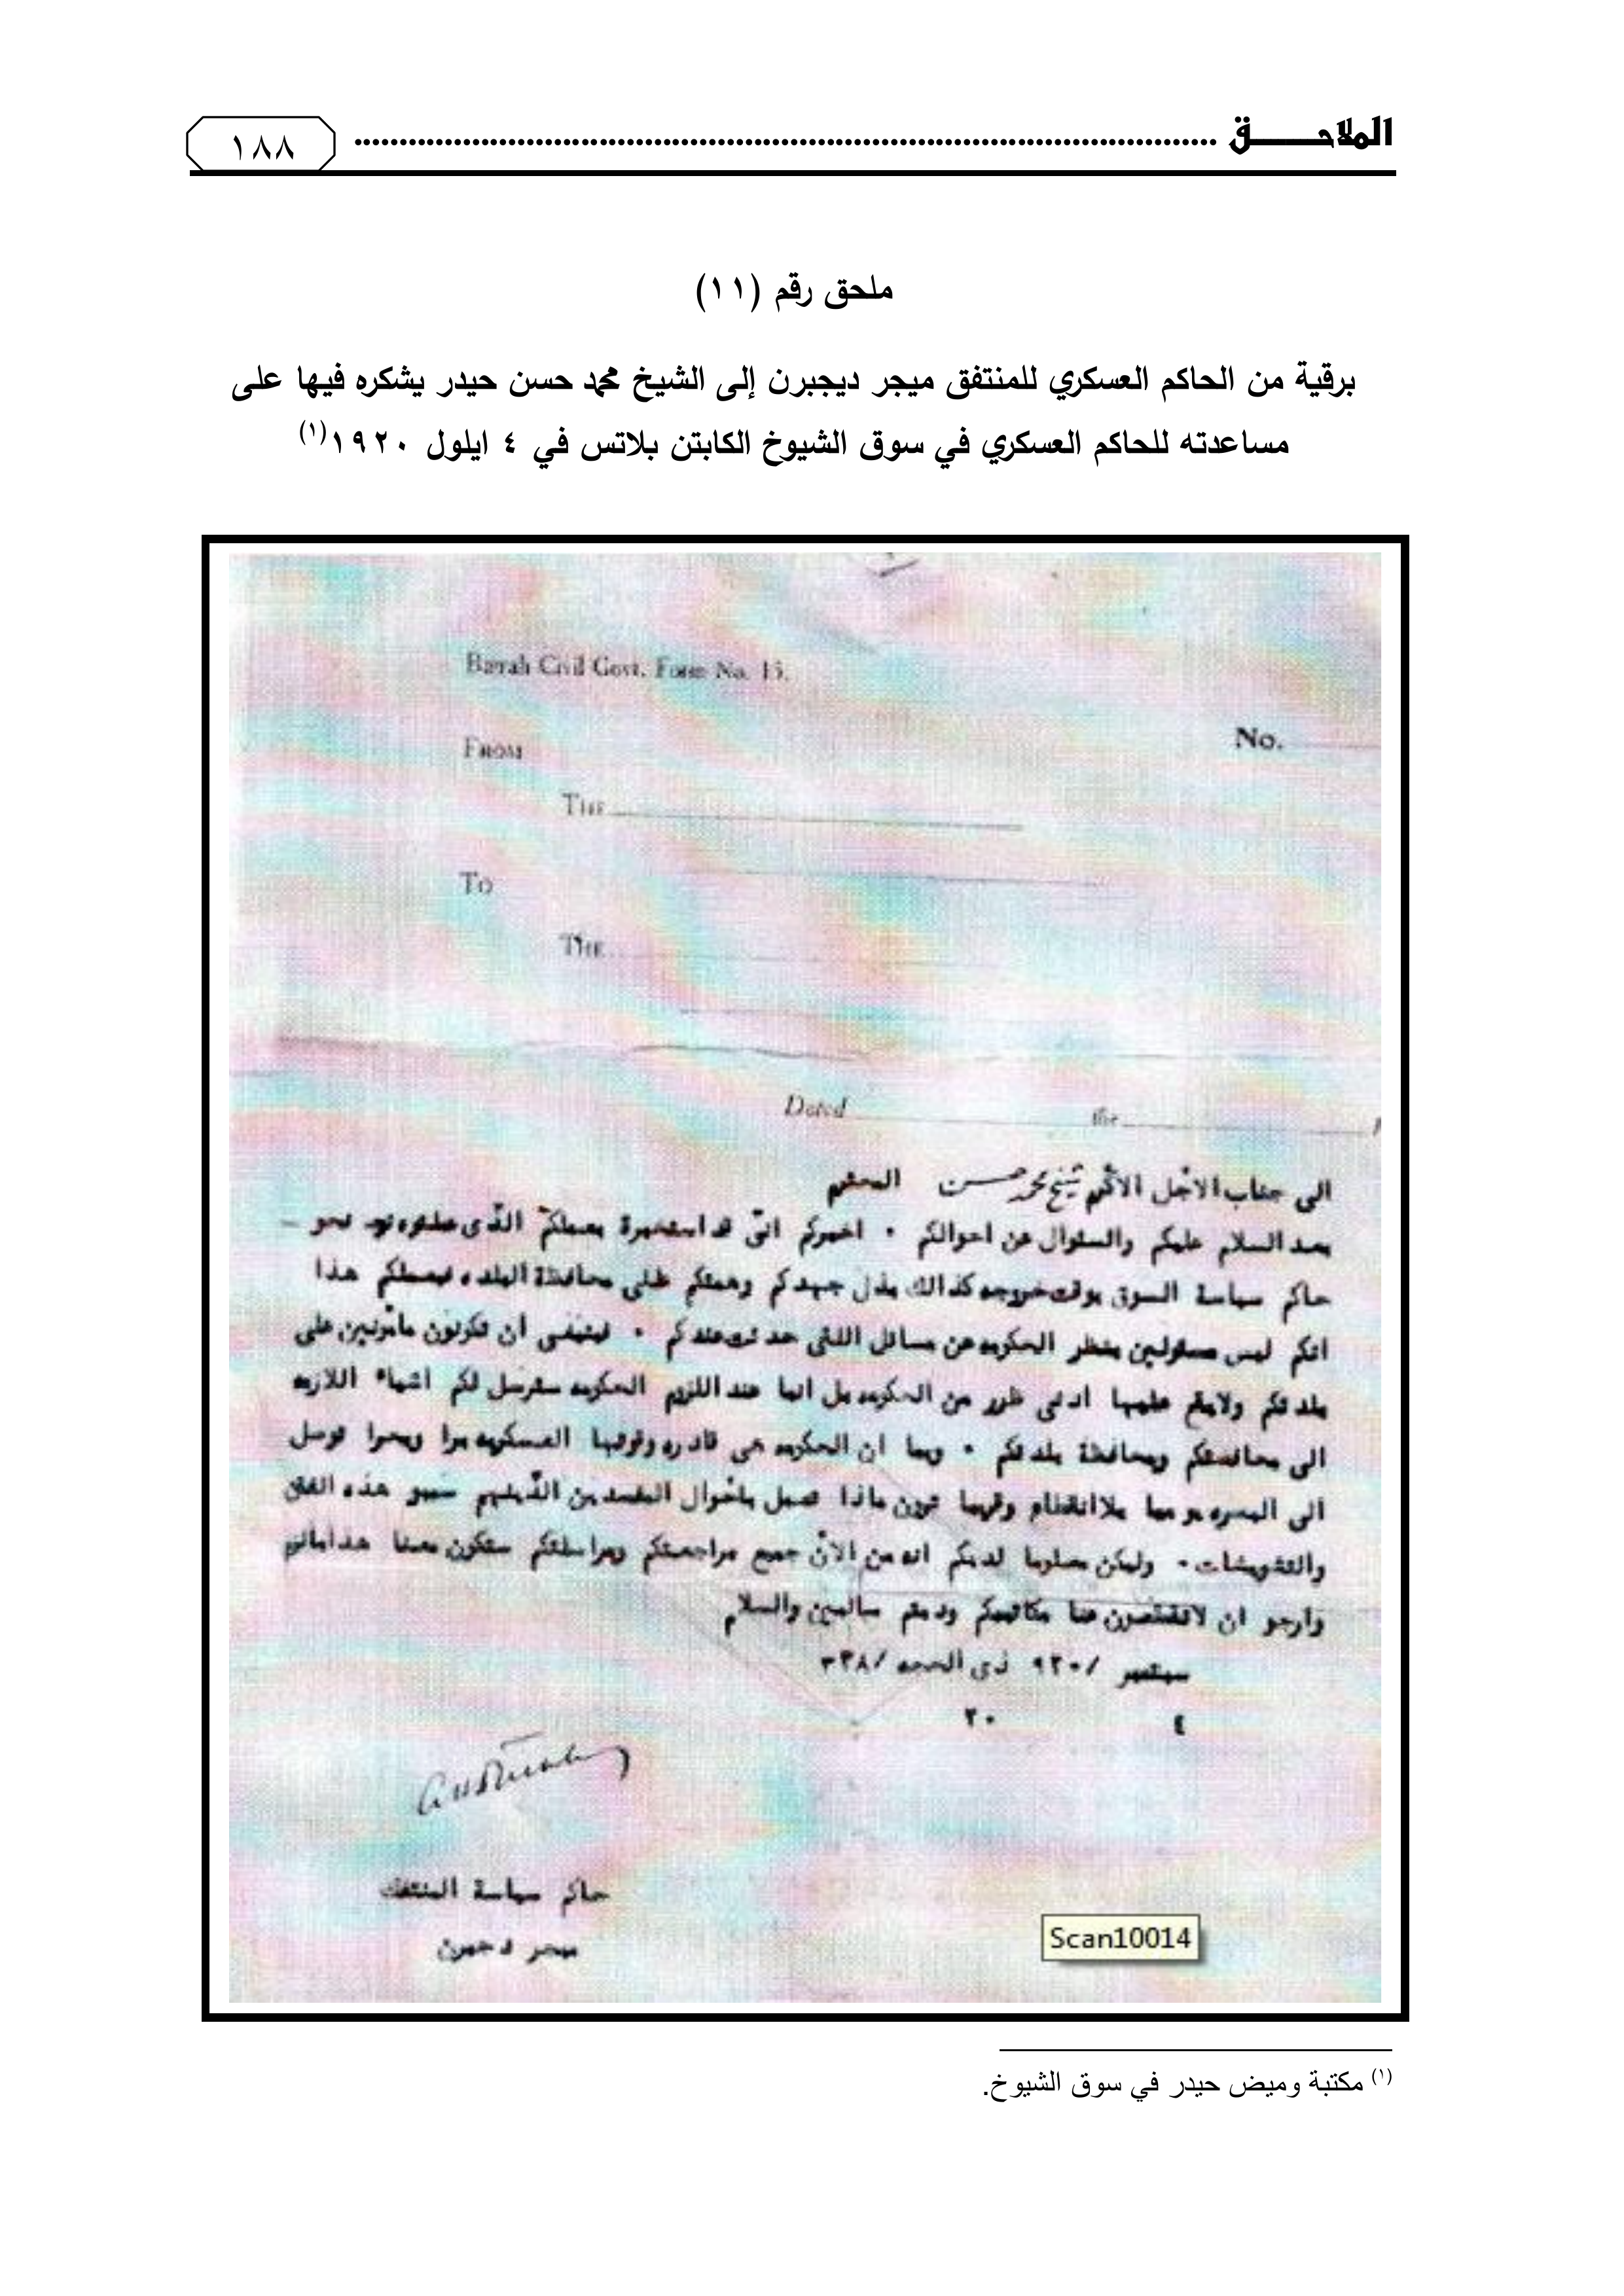 الملاحـــــق ........................................ ١٨٨
ملحق رقم (١١)
برقية من الحاكم العسكري للمنتفق ميجر ديجبرن إلى الشيخ محمد حسن حيدر يشكره فيها على
مساعدته للحاكم العسكري في سوق الشيوخ الكابتن بلاتس في ٤ ايلول ١٩٢٠(١)
Basrah Civil Govt. Form No. 15.
No.
FROM
THE
To
THE
Dated the
الى جناب الاجل الاكرم شيخ محمد حسن المحترم
بعد السلام عليكم والسئوال عن احوالكم ٠ اخبركم انى قد استخبرة بعملكم الذى نحو
حاكم سياسة السوق بوقت خروجه كذالك بذل جهدكم وهمتكم على محافظة البلده فبعملكم هذا
انكم ليس مسئولين بنظر الحكومه عن مسائل اللتى حدثت عندكم ٠ فينبغى ان تكونون مأمونين على
بلدتكم ولايقع عليها ادنى ظرر من الحكومه بل انما عند اللزوم الحكومه سترسل لكم اشياء اللازمه
الى محافظتكم ومحافظة بلدتكم ٠ وبما ان الحكومه هى قادره وقوتها العسكريه برا وبحرا توصل
الى البصره يوميا بلاانقطاع وقريبا ترون ماذا تعمل باحوال المفسدين الذينهم سببو هذه الفتن
والتشويشات ٠ وليكن معلوما لديكم انه من الان جميع مراجعتكم ومراسلتكم ستكون معنا
وارجو ان لاتقطعون عنا مكاتيبكم ودمتم سالمين والسلام
سبتمبر /٩٢٠ ذى الحجه /٣٣٨
٤ ٢٠
حاكم سياسة المنتفك
ميجر دجبرن
Scan10014
(١) مكتبة وميض حيدر في سوق الشيوخ.